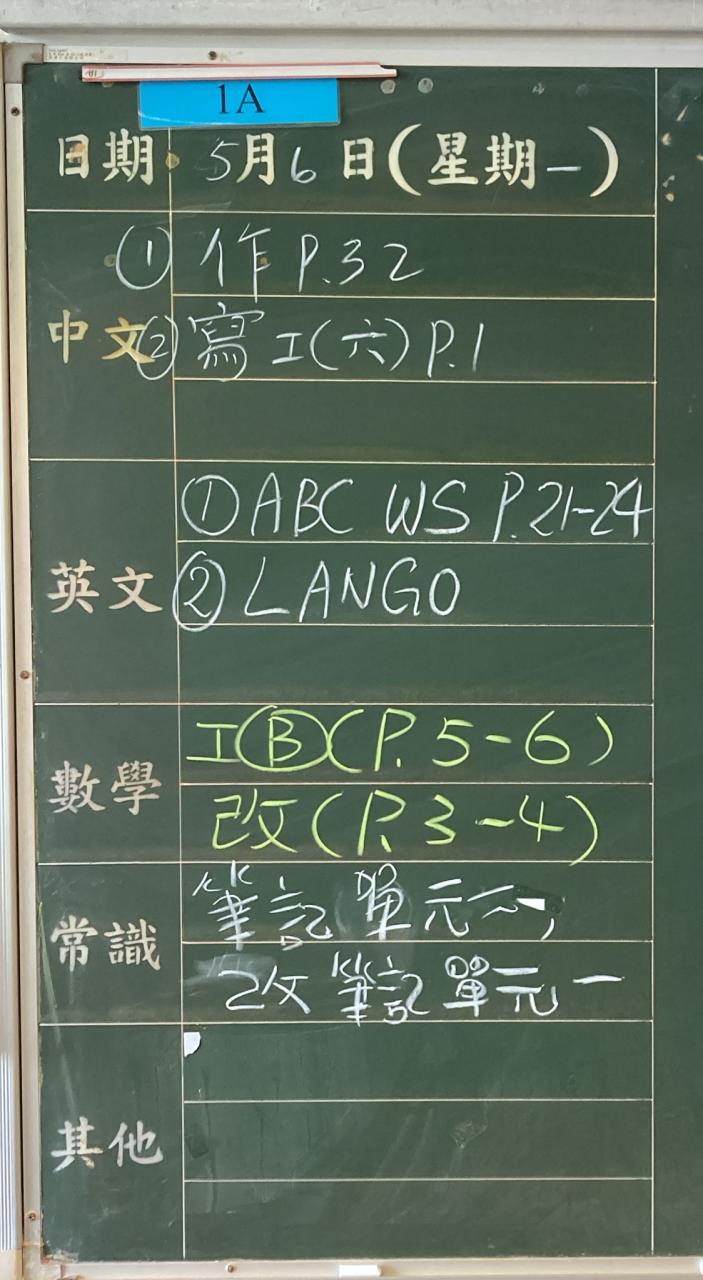 1A
日期 5月6日(星期一)
中文
① 作 P.32
② 寫 工(六) P.1
英文
① ABC WS P.21-24
② LANGO
數學
工Ⓑ(P. 5-6)
改(P. 3-4)
常識
筆記 單元
改 筆記 單元一
其他